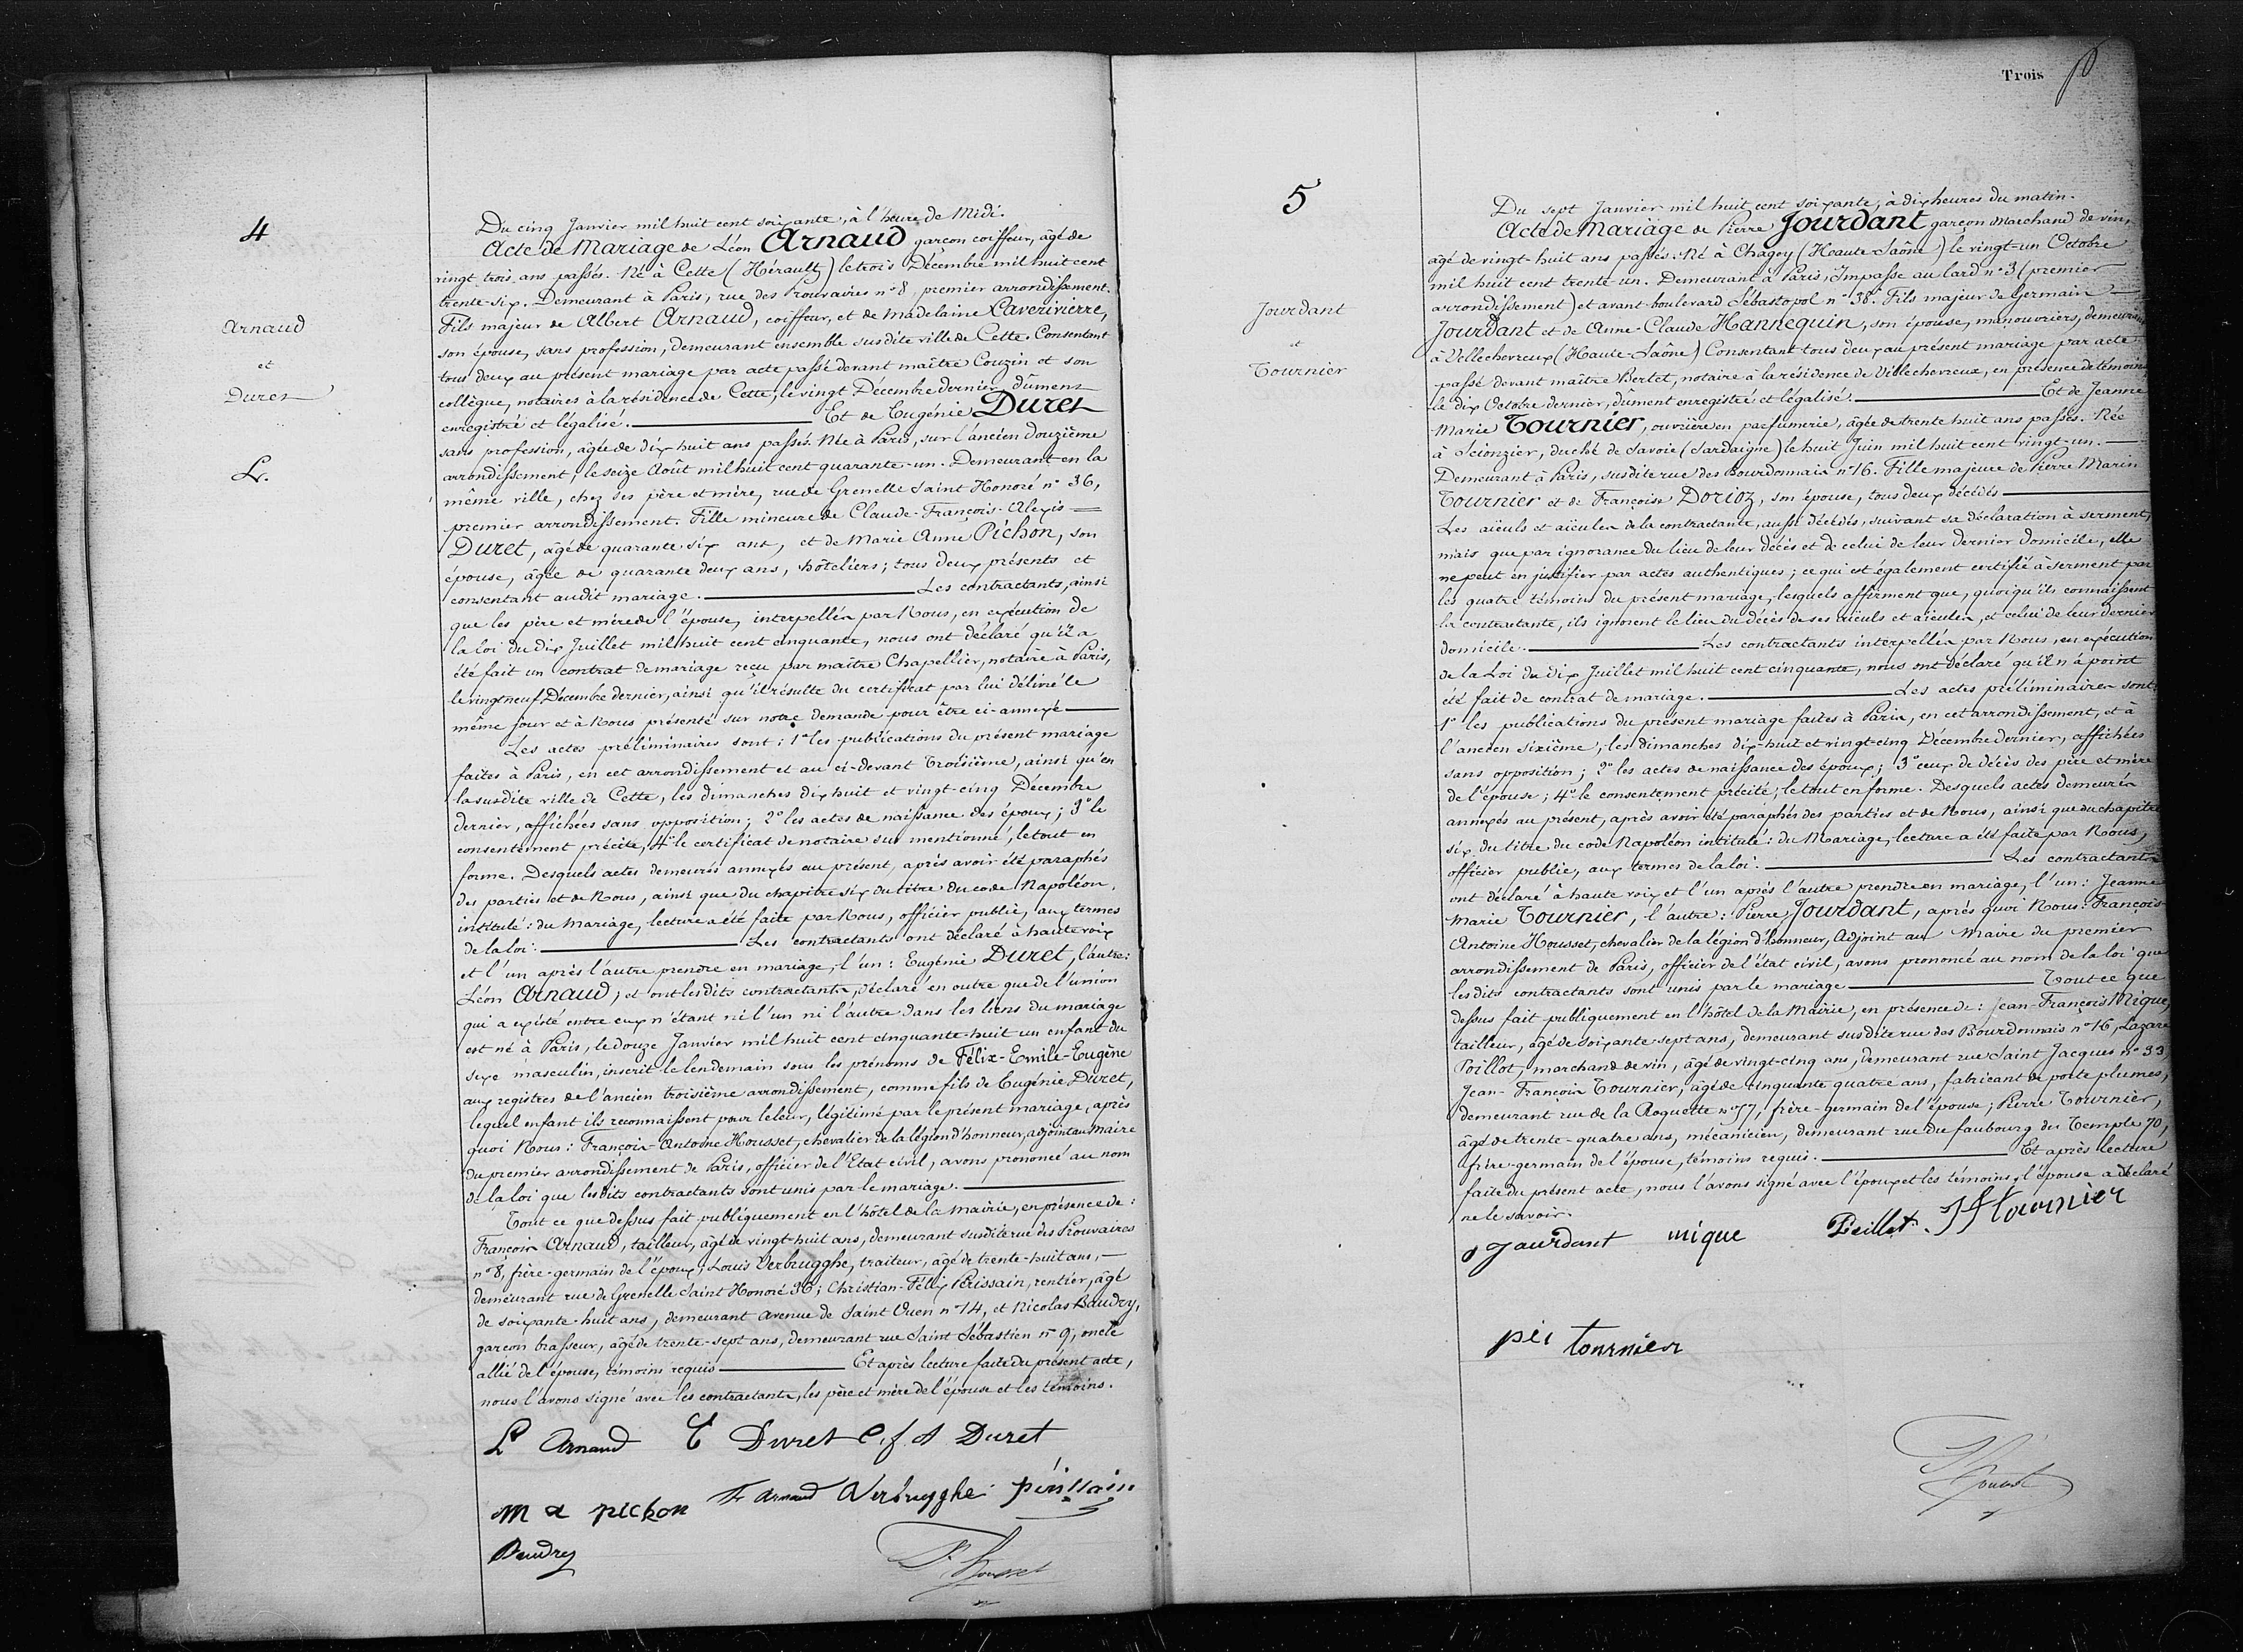 4
Arnaud
et
Duret
L.
Du cinq Janvier mil huit cent soixante, à l'heure de Midi.
Acte de Mariage de Léon Arnaud garçon coiffeur, âgé de
vingt trois ans passés. Né à Cette (Hérault) le trois Décembre mil huit cent
trente-six. Demeurant à Paris, rue des Prouvaires n° 8, premier arrondissement.
Fils majeur de Albert Arnaud, coiffeur, et de Madelaine Caverivierre,
son épouse, sans profession, demeurant ensemble susdite ville de Cette. Consentant
tous deux au présent mariage par acte passé devant maître Couzin et son
collègue, notaires à la résidence de Cette, le vingt Décembre dernier, dûment
enregistré et légalisé. Et de Eugénie Duret
sans profession, âgée de dix huit ans passés. Née à Paris, sur l'ancien douzième
arrondissement, le seize Août mil huit cent quarante-un. Demeurant en la
même ville, chez ses père et mère, rue de Grenelle Saint Honoré n° 36,
premier arrondissement. Fille mineure de Claude-François-Alexis
Duret, âgé de quarante six ans, et de Marie Anne Pichon, son
épouse, âgée de quarante deux ans, hôteliers; tous deux présents et
consentant audit mariage. Les contractants, ainsi
que les père et mère de l'épouse, interpellés par Nous, en exécution de
la loi du dix Juillet mil huit cent cinquante, nous ont déclaré qu'il a
été fait un contrat de mariage reçu par maître Chapellier, notaire à Paris,
le vingt neuf Décembre dernier, ainsi qu'il résulte du certificat par lui délivré le
même jour et à Nous présenté sur notre demande pour être ci-annexé
Les actes préliminaires sont: 1° les publications du présent mariage
faites à Paris, en cet arrondissement et au ci-devant troisième, ainsi qu'en
la susdite ville de Cette, les dimanches dix huit et vingt-cinq Décembre
dernier, affichées sans opposition; 2° les actes de naissance des époux; 3° le
consentement précité, 4° le certificat de notaire sus mentionné, le tout en
forme. Desquels actes demeurés annexés au présent, après avoir été paraphés
des parties et de Nous, ainsi que du chapitre six du titre du code Napoléon,
intitulé: du Mariage, lecture a été faite par Nous, officier public, aux termes
de la loi. Les contractants ont déclaré à haute voix
et l'un après l'autre prendre en mariage, l'un: Eugénie Duret, l'autre:
Léon Arnaud, et ont lesdits contractants, déclaré en outre que de l'union
qui a existé entre eux n'étant ni l'un ni l'autre dans les liens du mariage
est né à Paris, le douze Janvier mil huit cent cinquante-huit un enfant du
sexe masculin, inscrit le lendemain sous les prénoms de Félix-Emile-Eugène
aux registres de l'ancien troisième arrondissement, comme fils de Eugénie Duret,
lequel enfant ils reconnaissent pour le leur, légitimé par le présent mariage, après
quoi Nous: François-Antoine Housset, chevalier de la légion d'honneur, adjoint au Maire
du premier arrondissement de Paris, officier de l'Etat civil, avons prononcé au nom
de la loi que lesdits contractants sont unis par le mariage.
Tout ce que dessus fait publiquement en l'hôtel de la Mairie, en présence de:
François Arnaud, tailleur, âgé de vingt-huit ans, demeurant susdite rue des Prouvaires
n° 8, frère-germain de l'époux, Louis Verbrugghe, traiteur, âgé de trente-huit ans,
demeurant rue de Grenelle Saint Honoré 36; Christian-Félix Périssain, rentier, âgé
de soixante-huit ans, demeurant avenue de Saint Ouen n° 14, et Nicolas Baudry,
garçon brasseur, âgé de trente-sept ans, demeurant rue Saint Sébastien n° 9, oncle
allié de l'épouse, témoins requis Et après lecture faite du présent acte,
nous l'avons signé avec les contractants, les père et mère de l'épouse et les témoins.
L Arnaud E Duret C. f A Duret
M A pichon F Arnaud Verbrugghe périssain
Baudry
F. Housset
Trois
5
Jourdant
et
Tournier
Du sept Janvier mil huit cent soixante, à dix heures du matin.
Acte de Mariage de Pierre Jourdant garçon marchand de vin,
âgé de vingt-huit ans passés. Né à Chagey (Haute-Saône) le vingt-un Octobre
mil huit cent trente-un. Demeurant à Paris, Impasse au lard n° 3 (premier
arrondissement) et avant boulevard Sébastopol n° 38. Fils majeur de Germain
Jourdant et de Anne-Claude Hannequin, son épouse, manouvriers, demeurant
à Vellechevreux (Haute-Saône) Consentant tous deux au présent mariage par acte
passé devant maître Bertet, notaire à la résidence de Villechevreux, en présence de témoins,
le dix Octobre dernier, dûment enregistré et légalisé. Et de Jeanne
Marie Tournier, ouvrière en parfumerie, âgée de trente huit ans passés. Née
à Scionzier, duché de Savoie (Sardaigne) le huit Juin mil huit cent vingt-un.
Demeurant à Paris, susdite rue des Bourdonnais n° 16. Fille majeure de Pierre Marin
Tournier et de Françoise Dorioz, son épouse, tous deux décédés
Les aïeuls et aïeules de la contractante, aussi décédés, suivant sa déclaration à serment,
mais que par ignorance du lieu de leur décès et de celui de leur dernier domicile, elle
ne peut en justifier par actes authentiques; ce qui est également certifié à serment par
les quatre témoins du présent mariage, lesquels affirment que, quoiqu'ils connaissent
la contractante, ils ignorent le lieu du décès de ses aïeuls et aïeules, et celui de leur dernier
domicile. Les contractants interpellés par Nous, en exécution
de la Loi du dix Juillet mil huit cent cinquante, nous ont déclaré qu'il n'a point
été fait de contrat de mariage. Les actes préliminaires sont:
1° les publications du présent mariage faites à Paris, en cet arrondissement, et à
l'ancien sixième, les dimanches dix-huit et vingt-cinq Décembre dernier, affichées
sans opposition; 2° les actes de naissance des époux; 3° ceux de décès des père et mère
de l'épouse; 4° le consentement précité; le tout en forme. Desquels actes demeurés
annexés au présent, après avoir été paraphés des parties et de Nous, ainsi que du chapitre
six du titre du code Napoléon intitulé: du Mariage, lecture a été faite par Nous,
officier public, aux termes de la loi. Les contractants
ont déclaré à haute voix et l'un après l'autre prendre en mariage, l'un: Jeanne
Marie Tournier, l'autre: Pierre Jourdant, après quoi Nous: François-
Antoine Housset, chevalier de la légion d'honneur, Adjoint au Maire du premier
arrondissement de Paris, officier de l'état civil, avons prononcé au nom de la loi que
lesdits contractants sont unis par le mariage Tout ce que
dessus fait publiquement en l'hôtel de la Mairie, en présence de: Jean-François Mique,
tailleur, âgé de soixante-sept ans, demeurant susdite rue des Bourdonnais n° 16, Lazare
Poillot, marchand de vin, âgé de vingt-cinq ans, demeurant rue Saint Jacques n° 33
Jean-François Tournier, âgé de cinquante quatre ans, fabricant de porte plumes,
demeurant rue de la Roquette n° 77, frère-germain de l'épouse; Pierre Tournier,
âgé de trente-quatre ans, mécanicien, demeurant rue du faubourg du Temple 70,
frère-germain de l'épouse, témoins requis. Et après lecture
faite du présent acte, nous l'avons signé avec l'époux et les témoins, l'épouse a déclaré
ne le savoir.
Jourdant mique Poillot. JF tournier
tournier
F. Housset